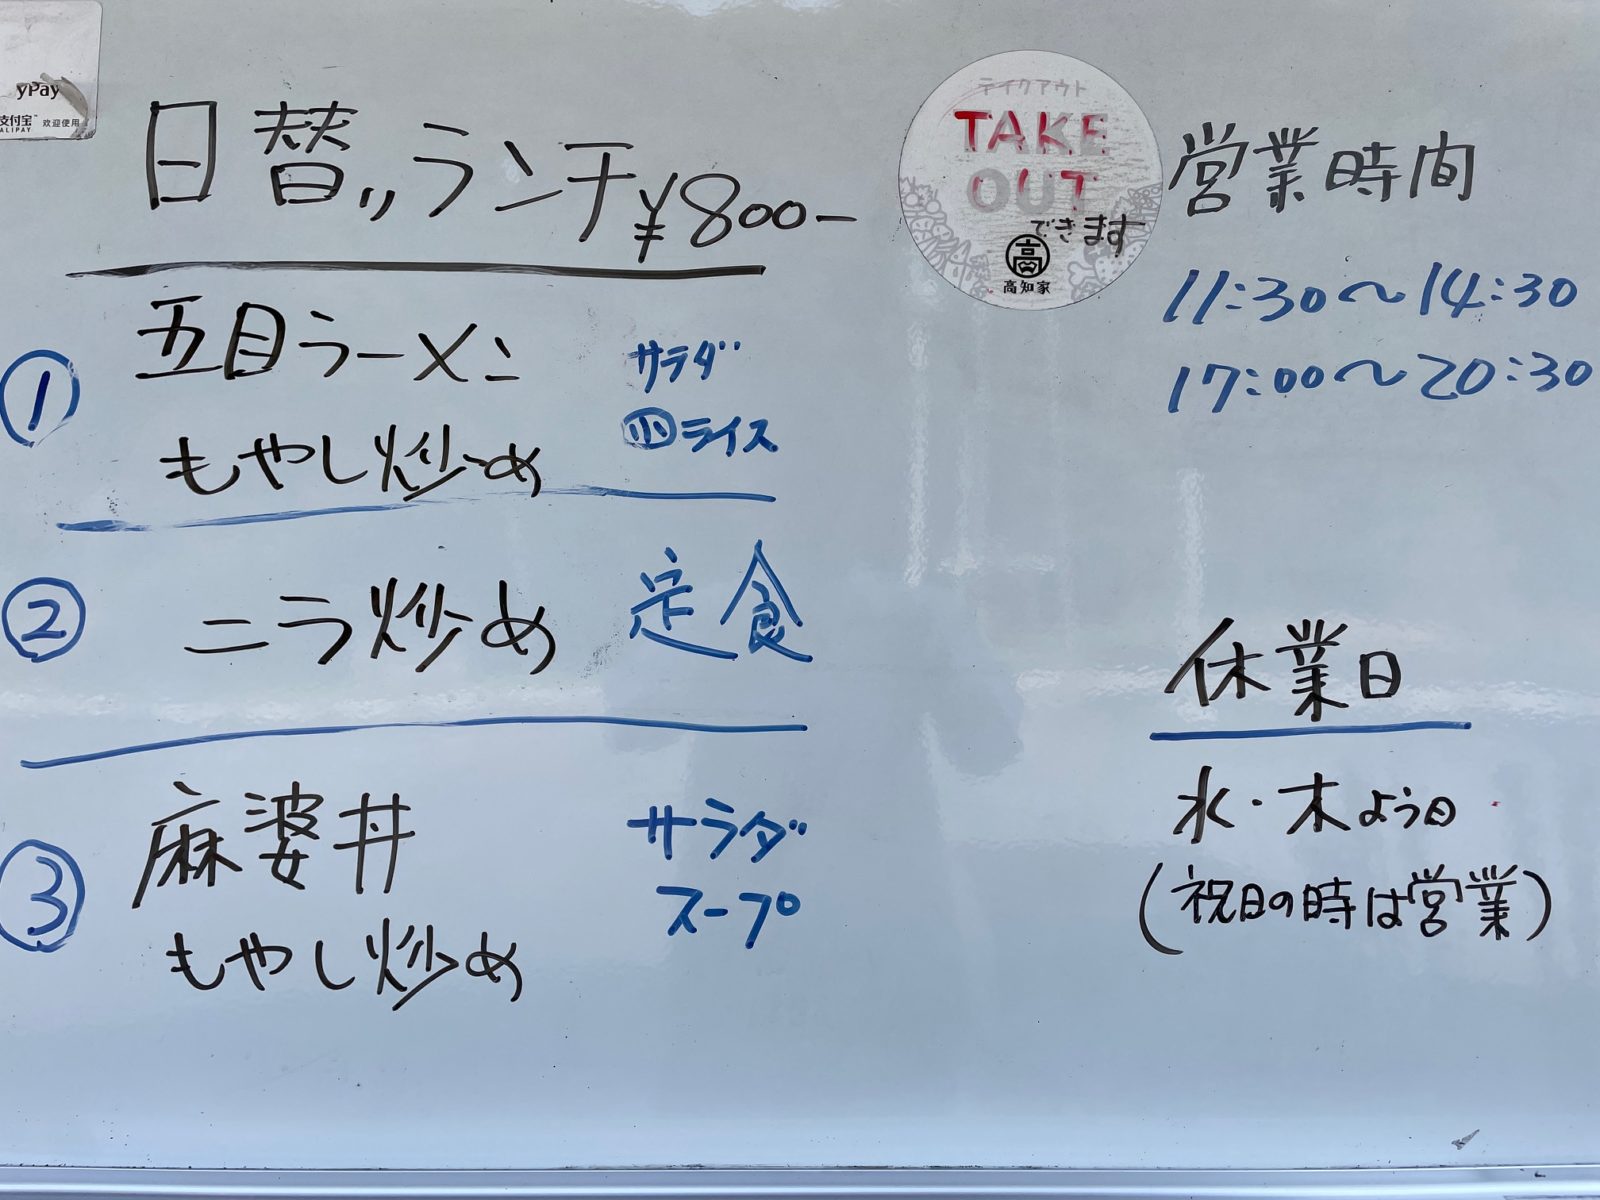 yPay
支付宝™ 欢迎使用
ALIPAY
日替ッランチ¥800-
① 五目ラーメン サラダ
もやし炒め ㊥ライス
② ニラ炒め 定食
③ 麻婆丼 サラダ
もやし炒め スープ
テイクアウト
TAKE
OUT
できます
高
高知家
営業時間
11:30～14:30
17:00～20:30
休業日
水・木よう日
(祝日の時は営業)